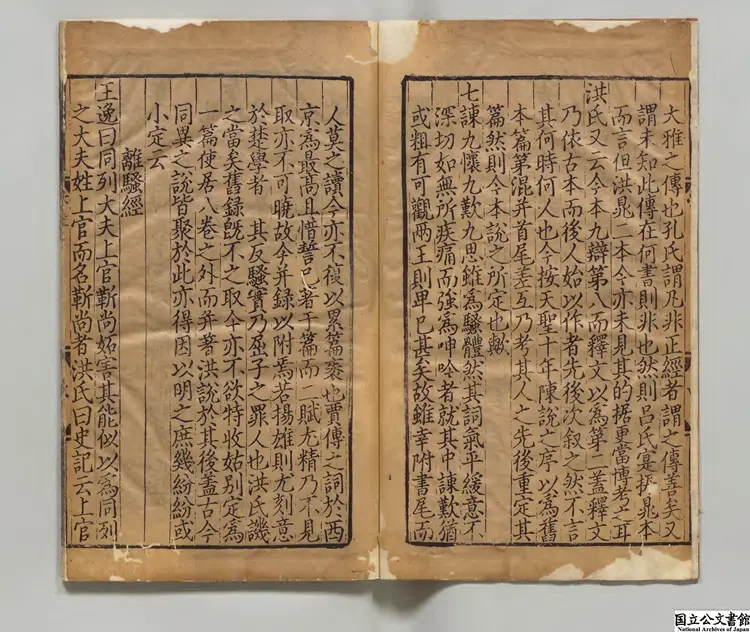 大雅之傳也孔氏謂凡非正經者謂之傳善矣又
謂未知此傳在何書則非也然則呂氏寔據晁本
而言但洪晁二本今亦未見其的據更當博考之耳
洪氏又云今本九辯第八而釋文以爲第二蓋釋文
乃依古本而後人始以作者先後次叙之然不言
其何時何人也今按天聖十年陳說之序以爲舊
本篇第混并首尾差互乃考其人之先後重定其
篇然則今本說之所定也歟
七諫九懷九歎九思雖爲騷體然其詞氣平緩意不
深切如無所疾痛而強爲呻吟者就其中諫歎猶
或粗有可觀两王則卑已甚矣故雖幸附書尾而
人莫之讀今亦不復以累篇袠也賈傳之詞於西
京爲最高且惜誓已著于篇而二賦尤精乃不見
取亦不可曉故今并録以附焉若揚雄則尤刻意
於楚學者 其反騷實乃屈子之罪人也洪氏譏
之當矣舊録旣不之取今亦不欲特收姑别定爲
一篇使居八卷之外而并著洪說於其後蓋古今
同異之說皆聚於此亦得因以明之庶幾紛紛或
小定云
離騷經
王逸曰同列大夫上官靳尚妬害其能似以爲同列
之大夫姓上官而名靳尚者洪氏曰史記云上官
国立公文書館
National Archives of Japan